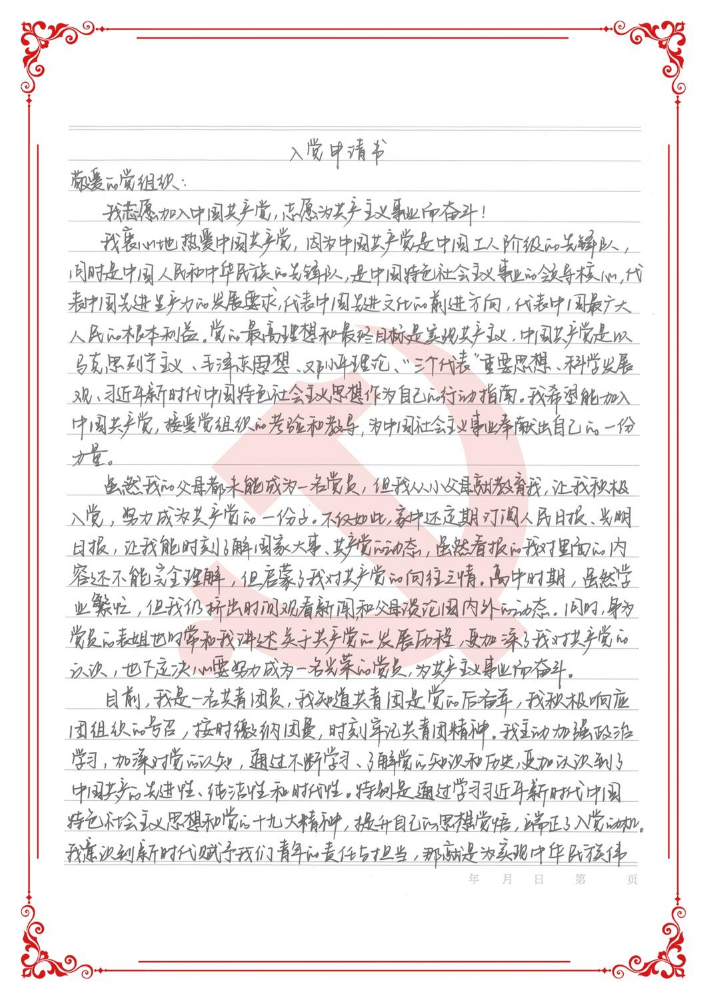 入党申请书
敬爱的党组织：
我志愿加入中国共产党，志愿为共产主义事业而奋斗！
我衷心地热爱中国共产党，因为中国共产党是中国工人阶级的先锋队，
同时是中国人民和中华民族的先锋队，是中国特色社会主义事业的领导核心，代
表中国先进生产力的发展要求，代表中国先进文化的前进方向，代表中国最广大
人民的根本利益。党的最高理想和最终目标是实现共产主义，中国共产党是以
马克思列宁主义、毛泽东思想、邓小平理论、“三个代表”重要思想、科学发展
观、习近平新时代中国特色社会主义思想作为自己的行动指南。我希望能加入
中国共产党，接受党组织的考验和教导，为中国社会主义事业奉献出自己的一份
力量。
虽然我的父母都未能成为一名党员，但我从小父母就教育我，让我积极
入党，努力成为共产党的一份子。不仅如此，家中还定期订阅人民日报、光明
日报，让我能时刻了解国家大事、共产党的动态，虽然看报的我对里面的内
容还不能完全理解，但启蒙了我对共产党的向往之情。高中时期，虽然学
业繁忙，但我仍挤出时间观看新闻和父母谈论国内外的动态。同时，身为
党员的表姐也时常和我讲述关于共产党的发展历程，更加深了我对共产党的
认识，也下定决心要努力成为一名光荣的党员，为共产主义事业而奋斗。
目前，我是一名共青团员，我知道共青团是党的后备军，我积极响应
团组织的号召，按时缴纳团费，时刻牢记共青团精神。我主动加强政治
学习，加深对党的认知，通过不断学习、了解党的知识和历史，更加认识到了
中国共产的先进性、纯洁性和时代性。特别是通过学习习近平新时代中国
特色社会主义思想和党的十九大精神，提升自己的思想觉悟，端正了入党动机。
我意识到新时代赋予我们青年的责任与担当，那就是为实现中华民族伟
年 月 日 第 页